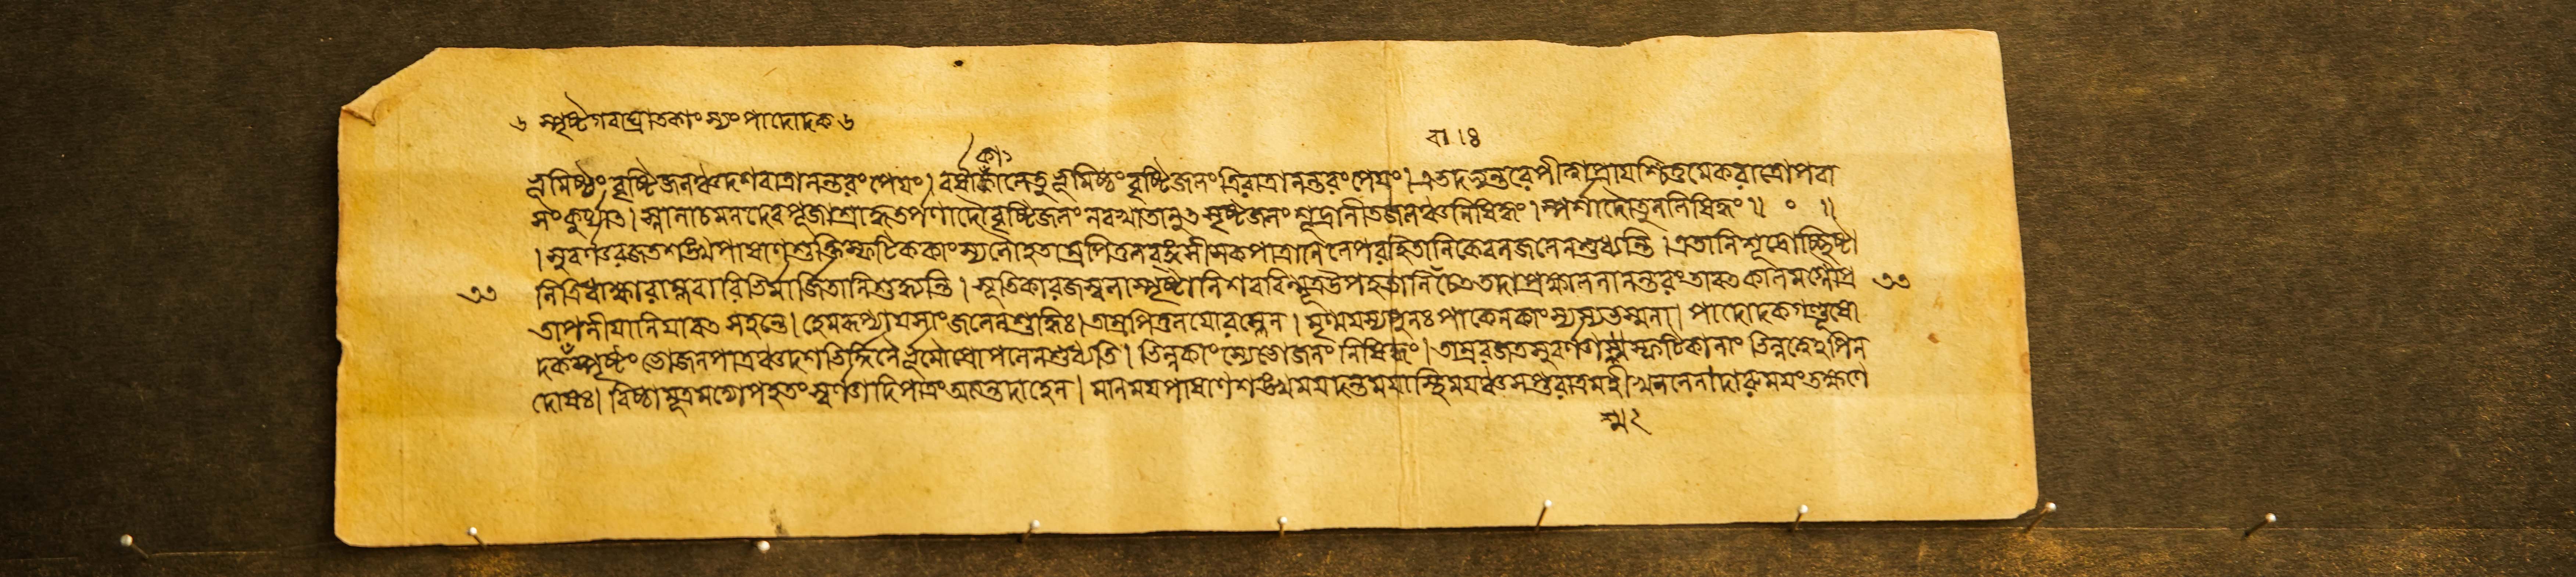 ৬ স্পৃষ্টগবাঘ্রাতকাংস্যং পাদোদক ৬
বা ।৪
কা
ভূমিষ্ঠং বৃষ্টিজলঞ্চ দশরাত্রানন্তরং পেয়ং। বর্ষাকালেতু ভূমিষ্ঠং বৃষ্টিজলং ত্রিরাত্রানন্তরং পেয়ং। এতদভ্যন্তরেপীত্বা প্রায়শ্চিত্তমেকরাত্রোপবা
সং কুর্য্যাত। স্নানাচমনদেবপূজাশ্রাদ্ধতর্পণাদৌ বৃষ্টিজলং নবখাতাদ্ভুত স্পৃষ্টজলং শূদ্রানীতজলঞ্চ নিষিদ্ধং। স্পর্শাদৌতু ন নিষিদ্ধং॥ ০ ॥
। সুবর্ণরজতশঙ্খপাষাণশুক্তিস্ফটিককাংস্যলৌহতাম্রপিত্তলবঙ্গসীসকপাত্রাণি লেপরহিতানি কেবলজলেন শুধ্যন্তি। এতানি শূদ্রোচ্ছিষ্টা
৩৩ নি ত্রিধাক্ষারাম্লবারিভির্মার্জিতানি শুদ্ধ্যন্তি। সূতিকারজস্বলাস্পৃষ্টানি শববিন্মূত্রউপহতানি চেত্তদা প্রক্ষালনানন্তরং তাবত কালমগ্নৌ প্র ৩৩
তাপনীয়ানি যাবত সহন্তে। হেমরূপ্যায়সাং জলেন শুদ্ধিঃ। তাম্রপিত্তলয়োরম্লেন। মৃণ্ময়স্য পুনঃ পাকেন কাংস্যস্য ভস্মনা। পাদোদকগণ্ডূষো
দকস্পৃষ্টং ভোজনপাত্রঞ্চ দশভির্দিনৈর্ভূমৌ রোপনেন শুধ্যতি। ভিন্নকাংস্যে ভোজনং নিষিদ্ধং। তাম্ররজতসুবর্ণ স্ফটিকানাং ভিন্নত্বেঽপি ন
দোষঃ। বিষ্ঠামূত্রমদ্যোপহতং স্বর্ণাদিপাত্রং দাহেন। পাষাণশঙ্খময়দন্তময়াস্থিময়ঞ্চ সপ্তরাত্রমহীখননেন দারুময়ং তক্ষণে